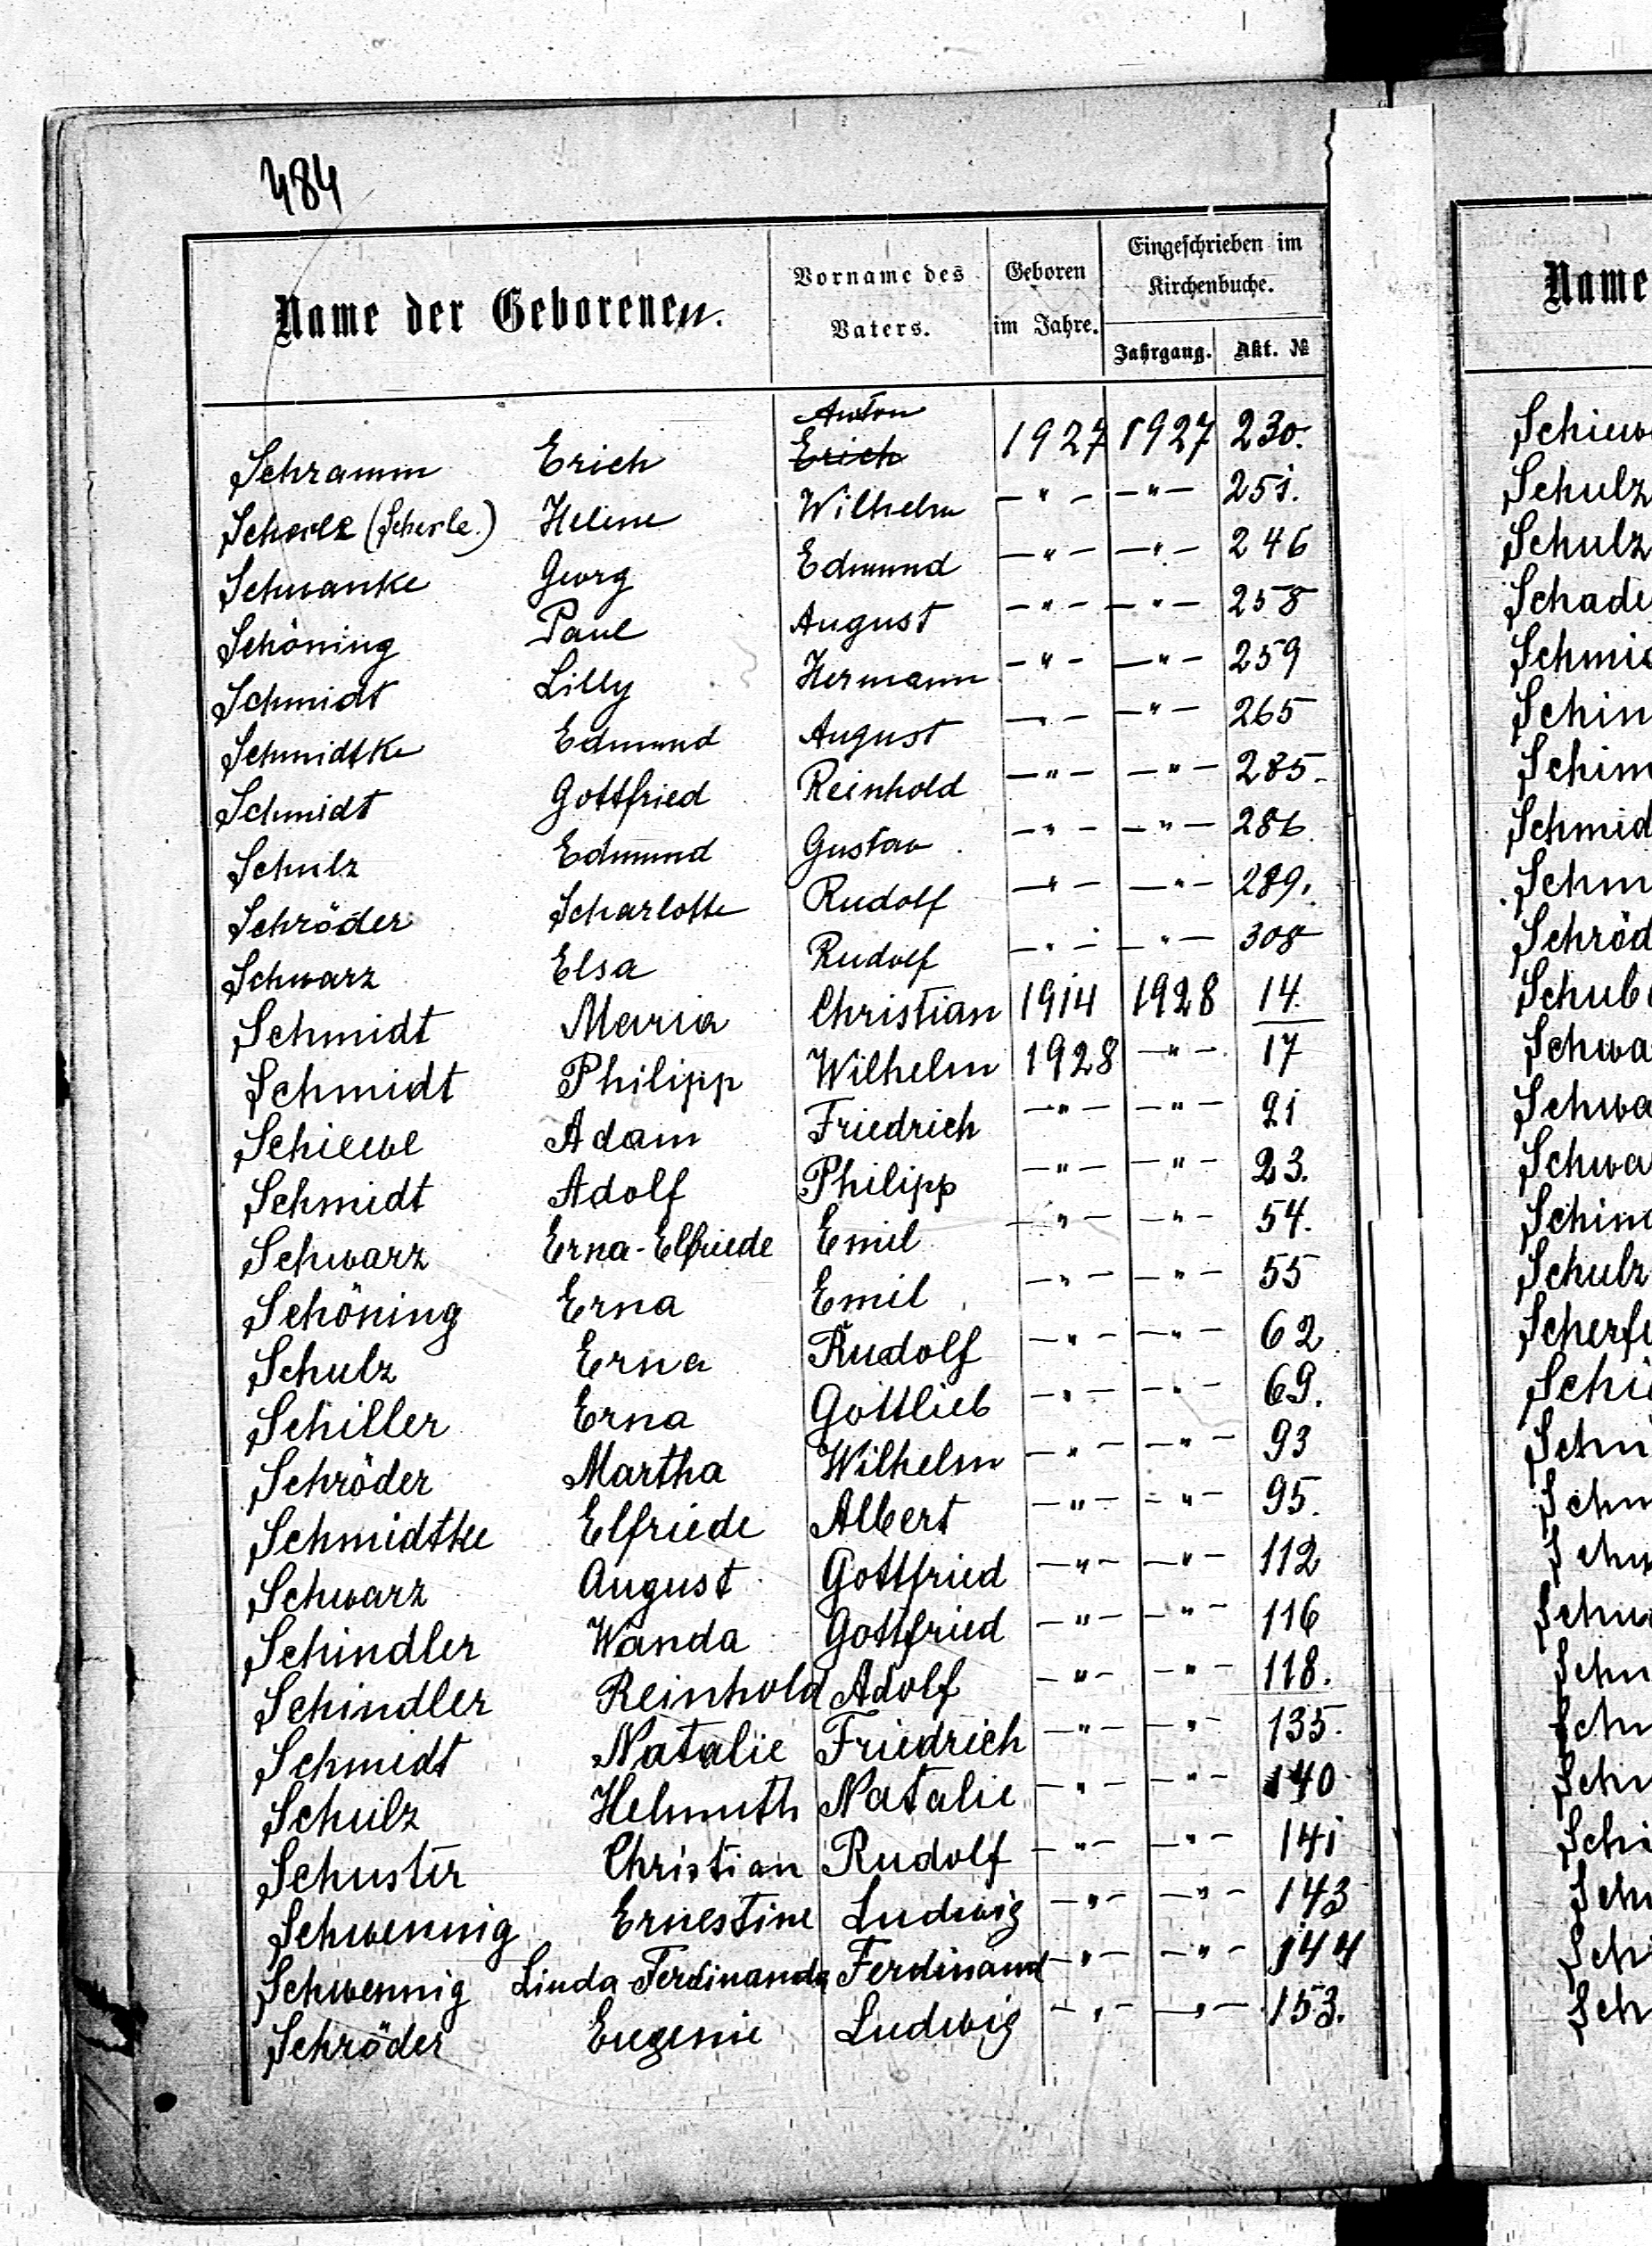 484
Name der Geborenen.
Vorname des Vaters.
Geboren im Jahre.
Eingeschrieben im Kirchenbuche.
Jahrgang. Akt. №
Anton
Schramm Erich Erich 1927 1927 230.
(Scherle.) Helene Wilhelm —"— —"— 251.
Schwanke Georg Edmund —"— —"— 246
Schöning Paul August —"— —"— 258
Schmidt Lilly Hermann —"— —"— 259
Schmidtke Edmund August —"— —"— 265
Schmidt Gottfried Reinhold —"— —"— 285.
Schulz Edmund Gustav —"— —"— 286.
Schröder Scharlotte Rudolf —"— —"— 289.
Schwarz Elsa Rudolf —"— —"— 308
Schmidt Maria Christian 1914 1928 14.
Schmidt Philipp Wilhelm 1928 —"— 17
Schiewe Adam Friedrich —"— —"— 21
Schmidt Adolf Philipp —"— —"— 23.
Schwarz Erna-Elfriede Emil —"— —"— 54.
Schöning Erna Emil —"— —"— 55
Schulz Erna Rudolf —"— —"— 62
Schiller Erna Gottlieb —"— —"— 69.
Schröder Martha Wilhelm —"— —"— 93
Schmidtke Elfriede Albert —"— —"— 95.
Schwarz August Gottfried —"— —"— 112
Schindler Wanda Gottfried —"— —"— 116
Schindler Reinhold Adolf —"— —"— 118.
Schmidt Natalie Friedrich —"— —"— 135.
Schulz Helmuth Natalie —"— —"— 140
Schuster Christian Rudolf —"— —"— 141
Schwennig Ernestine Ludwig —"— —"— 143
Schwennig Linda Ferdinanda Ferdinand —"— —"— 144
Schröder Eugenie Ludwig —"— —"— 153.
Name
Schulz
Schulz
Schulz